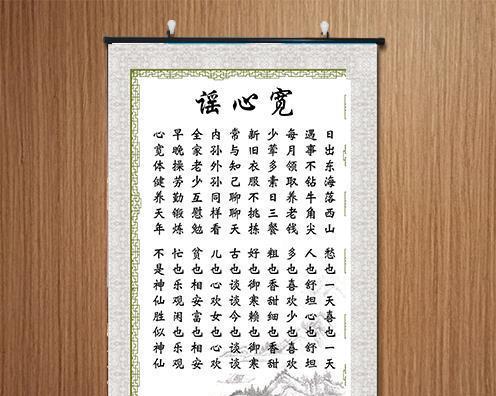 宽心谣
日出东海落西山 愁也一天喜也一天
遇事不钻牛角尖 人也舒坦心也舒坦
每月领取养老钱 多也喜欢少也喜欢
少荤多素日三餐 粗也香甜细也香甜
新旧衣服不挑拣 好也御寒赖也御寒
常与知己聊聊天 古也谈谈今也谈谈
内孙外孙同样看 儿也心欢女也心欢
全家老少互慰勉 贫也相安富也相安
早晚操劳勤锻炼 忙也乐观闲也乐观
心宽体健养天年 不是神仙胜似神仙